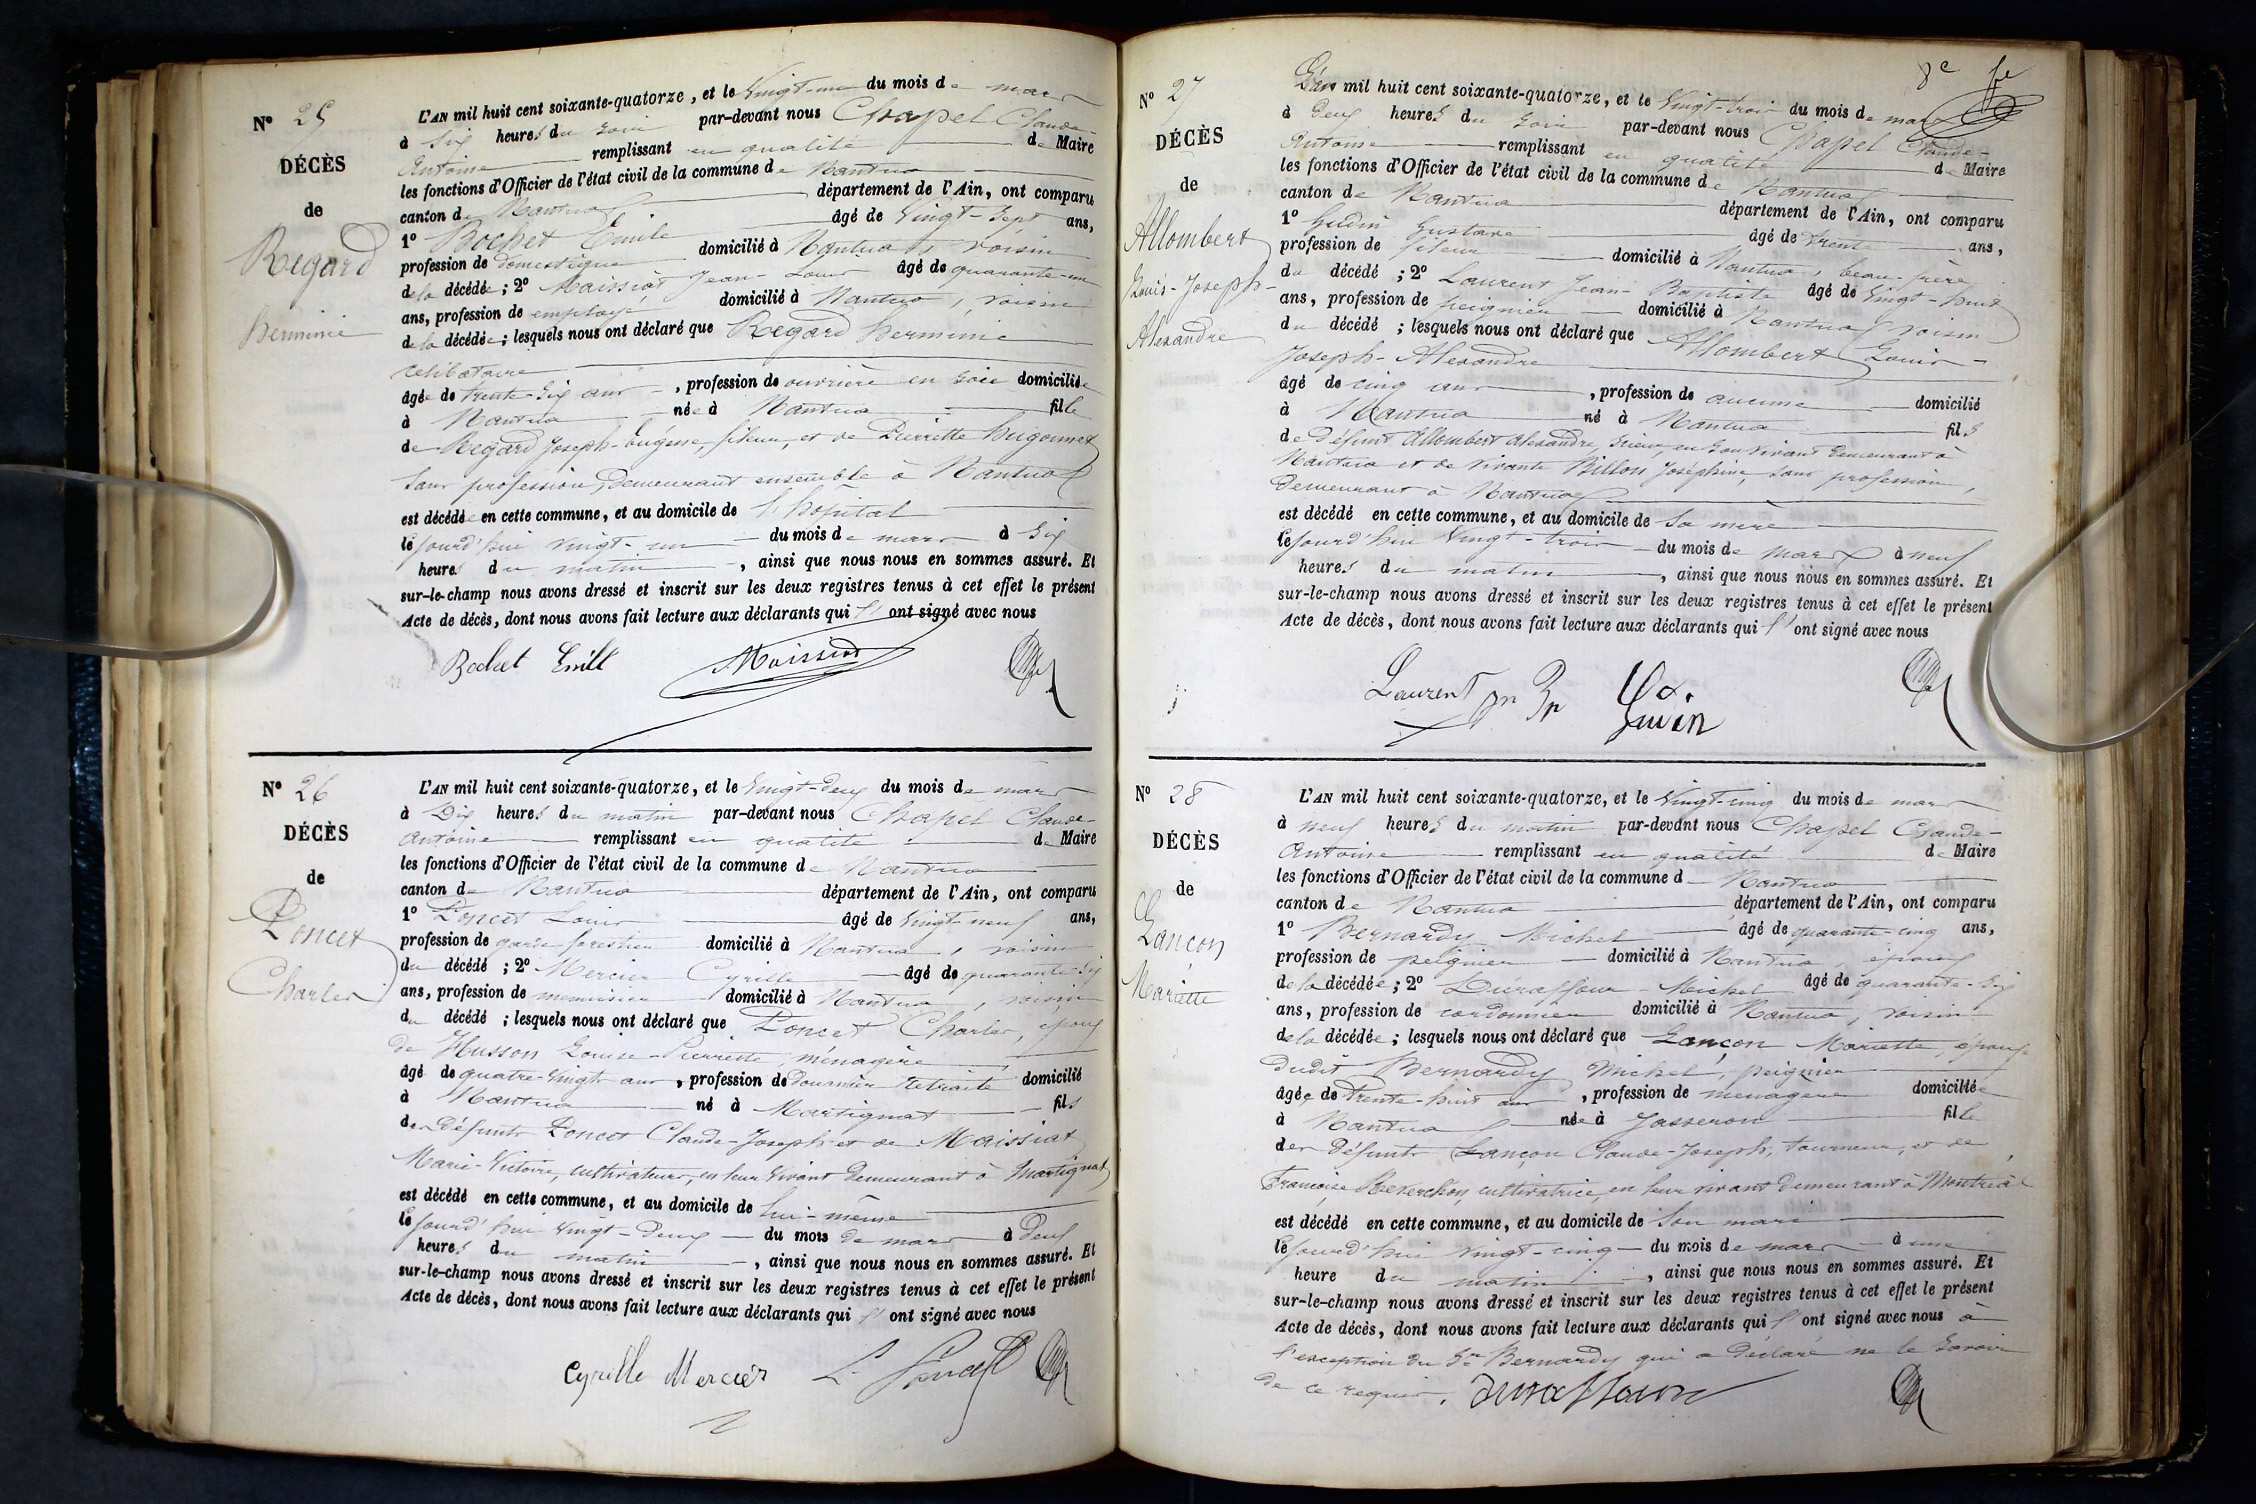 N° 25
DÉCÈS
de
Regard
herminie
L'AN mil huit cent soixante-quatorze, et le vingt-un du mois de mars
à Six heures du soir par-devant nous Chapel Claude-
Antoine remplissant en qualité de Maire
les fonctions d'Officier de l'état civil de la commune de Nantua
canton de Nantua département de l'Ain, ont comparu
1° Bochet Emile âgé de vingt-sept ans,
profession de domestique domicilié à Nantua, voisin
de la décédée; 2° Maissiat Jean-Louis âgé de quarante-un
ans, profession de employé domicilié à Nantua, voisin
de la décédée; lesquels nous ont déclaré que Regard herminie
célibataire
âgée de trente-six ans, profession de ouvrière en soie domiciliée
à Nantua née à Nantua fille
de Regard Joseph-Eugène, fileur, et de Pierrette hugonnet
sans profession, demeurant ensemble à Nantua
est décédée en cette commune, et au domicile de l'hôpital
le jourd'hui vingt-un du mois de mars à six
heures du matin, ainsi que nous nous en sommes assuré. Et
sur-le-champ nous avons dressé et inscrit sur les deux registres tenus à cet effet le présent
Acte de décès, dont nous avons fait lecture aux déclarants qui l'ont signé avec nous
Bochet Emile Maissiat
N° 26
DÉCÈS
de
Poncet
Charles
L'AN mil huit cent soixante-quatorze, et le vingt-deux du mois de mars
à Dix heures du matin par-devant nous Chapel Claude-
Antoine remplissant en qualité de Maire
les fonctions d'Officier de l'état civil de la commune de Nantua
canton de Nantua département de l'Ain, ont comparu
1° Poncet Louis âgé de vingt-neuf ans,
profession de garde forestier domicilié à Nantua, voisin
du décédé; 2° Mercier Cyrille âgé de quarante-six
ans, profession de menuisier domicilié à Nantua, voisin
du décédé; lesquels nous ont déclaré que Poncet Charles, époux
de Husson Louise-Pierrette, ménagère
âgé de quatre-vingts ans, profession de Douanier retraité domicilié
à Nantua né à Martignat fils
des défunts Poncet Claude-Joseph et de Maissiat
Marie-Victoire, cultivateurs, en leur vivant demeurant à Martignat
est décédé en cette commune, et au domicile de lui-même
le jourd'hui vingt-deux du mois de mars à deux
heures du matin, ainsi que nous nous en sommes assuré. Et
sur-le-champ nous avons dressé et inscrit sur les deux registres tenus à cet effet le présent
Acte de décès, dont nous avons fait lecture aux déclarants qui l'ont signé avec nous
Cyrille Mercier L. Poncet
8e fe
N° 27
DÉCÈS
de
Allombert
Louis-Joseph-
Alexandre
L'an mil huit cent soixante-quatorze, et le vingt-trois du mois de mars
à deux heures du soir par-devant nous Chapel Claude-
Antoine remplissant en qualité de Maire
les fonctions d'Officier de l'état civil de la commune de Nantua
canton de Nantua département de l'Ain, ont comparu
1° Gustave âgé de trente ans,
profession de fileur domicilié à Nantua, beau-frère
du décédé; 2° Laurent Jean-Baptiste âgé de vingt-huit
ans, profession de peignier domicilié à Nantua voisin
du décédé; lesquels nous ont déclaré que Allombert Louis-
Joseph-Alexandre
âgé de cinq ans, profession de aucune domicilié
à Nantua né à Nantua fils
de défunt Allombert Alexandre, en son vivant demeurant à
Nantua et de vivante Billon Joséphine, sans profession,
demeurant à Nantua
est décédé en cette commune, et au domicile de sa mère
le jourd'hui vingt-trois du mois de mars à neuf
heures du matin, ainsi que nous nous en sommes assuré. Et
sur-le-champ nous avons dressé et inscrit sur les deux registres tenus à cet effet le présent
Acte de décès, dont nous avons fait lecture aux déclarants qui l'ont signé avec nous
Laurent
N° 28
DÉCÈS
de
Lançon
Mariette
L'AN mil huit cent soixante-quatorze, et le vingt-cinq du mois de mars
à neuf heures du matin par-devant nous Chapel Claude-
Antoine remplissant en qualité de Maire
les fonctions d'Officier de l'état civil de la commune d Nantua
canton de Nantua département de l'Ain, ont comparu
1° Bernardy Michel âgé de quarante-cinq ans,
profession de peignier domicilié à Nantua, époux
de la décédée; 2° Duraffour Michel âgé de quarante-six
ans, profession de cordonnier domicilié à Nantua, voisin
de la décédée; lesquels nous ont déclaré que Lançon Mariette, épouse
dudit Bernardy Michel, peignier
âgée de trente-huit ans, profession de ménagère domiciliée
à Nantua née à Jasseron fille
des défunts Lançon Claude-Joseph, tourneur, et de
Françoise Reverchon, cultivatrice, en leur vivant demeurant à Montréal
est décédé en cette commune, et au domicile de son mari
le jourd'hui vingt-cinq du mois de mars à une
heure du matin, ainsi que nous nous en sommes assuré. Et
sur-le-champ nous avons dressé et inscrit sur les deux registres tenus à cet effet le présent
Acte de décès, dont nous avons fait lecture aux déclarants qui l'ont signé avec nous à
l'exception du Sr Bernardy qui a déclaré ne le savoir
de ce requis. Duraffour